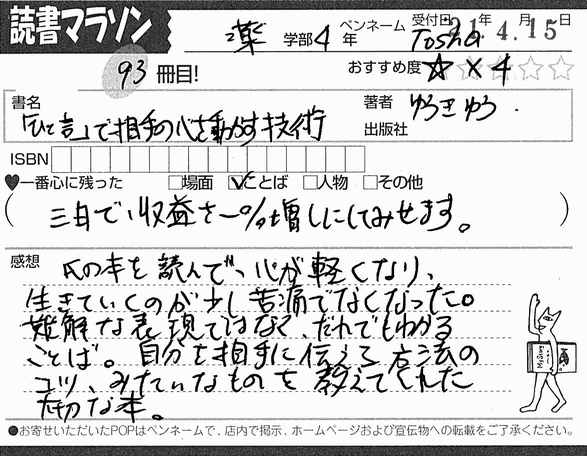 読書マラソン
薬 学部 4 年 ペンネーム Tosha 受付日 21年 4月 15日
93 冊目! おすすめ度 ☆×4 ☆☆
書名 「ひと言」で相手の心を動かす技術 著者 ゆうきゆう
出版社
ISBN
♥一番心に残った □場面 ☑ことば □人物 □その他
(三日で、収益を一〇%増しにしてみせます。)
感想 氏の本を読んで、心が軽くなり、
生きていくのが少し苦痛でなくなった。
難解な表現ではなく、だれでもわかる
ことば。自分を相手に伝える方法の
コツ、みたいなものを教えてくれた
大切な本。
●お寄せいただいたPOPはペンネームで、店内で掲示、ホームページおよび宣伝物への転載をご了承ください。